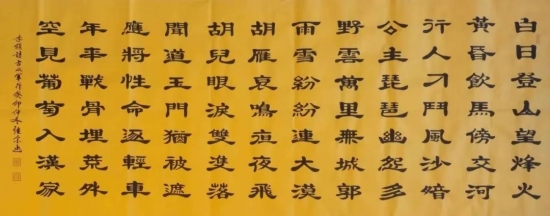 白日登山望烽火
黃昏飲馬傍交河
行人刁鬥風沙暗
公主琵琶幽怨多
野雲萬里無城郭
雨雪紛紛連大漠
胡雁哀鳴夜夜飛
胡兒眼淚雙雙落
聞道玉門猶被遮
應將性命逐輕車
年年戰骨埋荒外
空見葡萄入漢家
李頎詩古從軍行癸卯仲冬